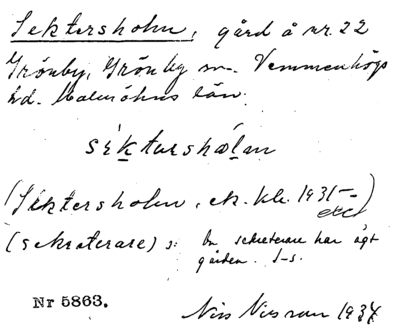 Sektersholm, gård å nr. 22
Grönby, Grönby sn. Vemmenhögs
hd. Malmöhus län.
séktərshálm
(Sektersholm, ek. kle. 1931– etc)
(sekreterare) s: En sekreterare har ägt
gården. S-s.
Nr 5863. Nils Nilsson 1937